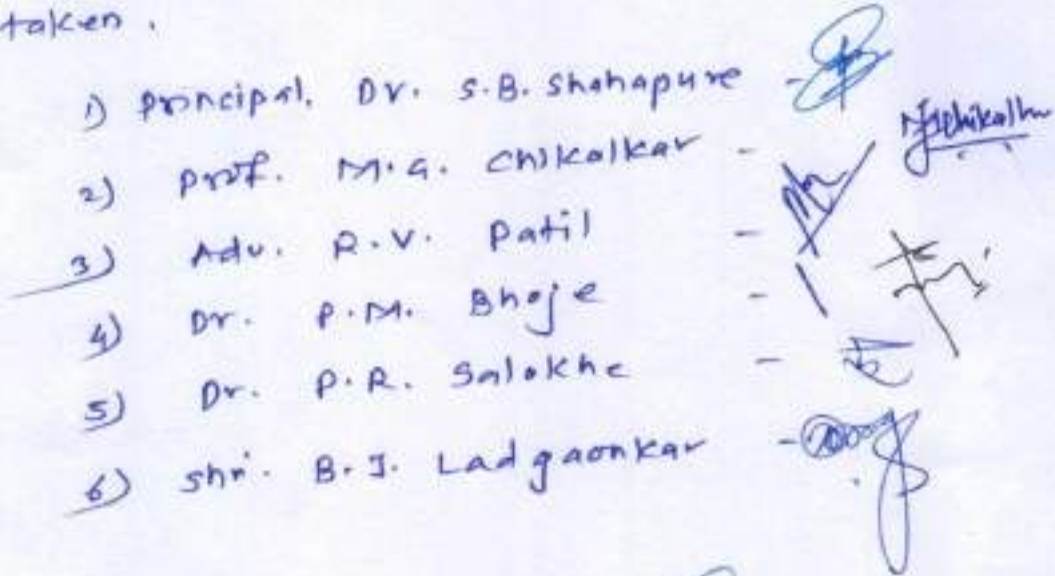 taken.
1) Principal. Dr. S.B. Shahapure -
2) Prof. M.G. Chikalkar -
3) Adv. R.V. Patil -
4) Dr. P.M. Bhoje -
5) Dr. P.R. Salokhe -
6) Shri. B.J. Ladgaonkar -